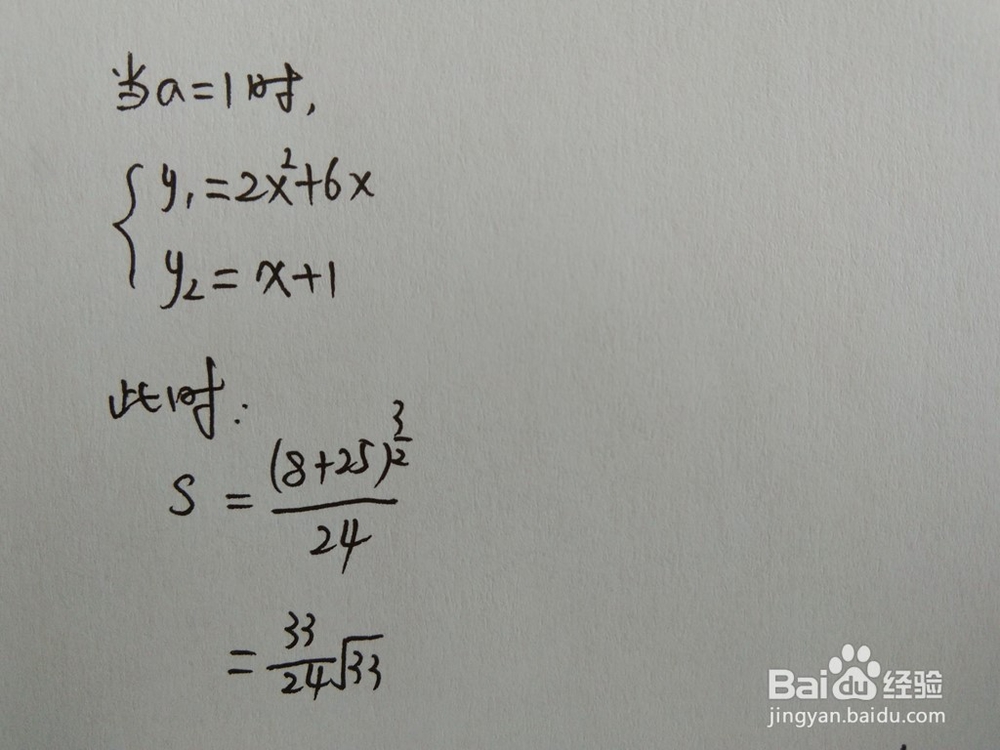 当a=1时,
y₁=2x²+6x
y₂=x+1
此时:
S=(8+25)^(3/2)/24
=33/24√33
Baidu经验
jingyan.baidu.com